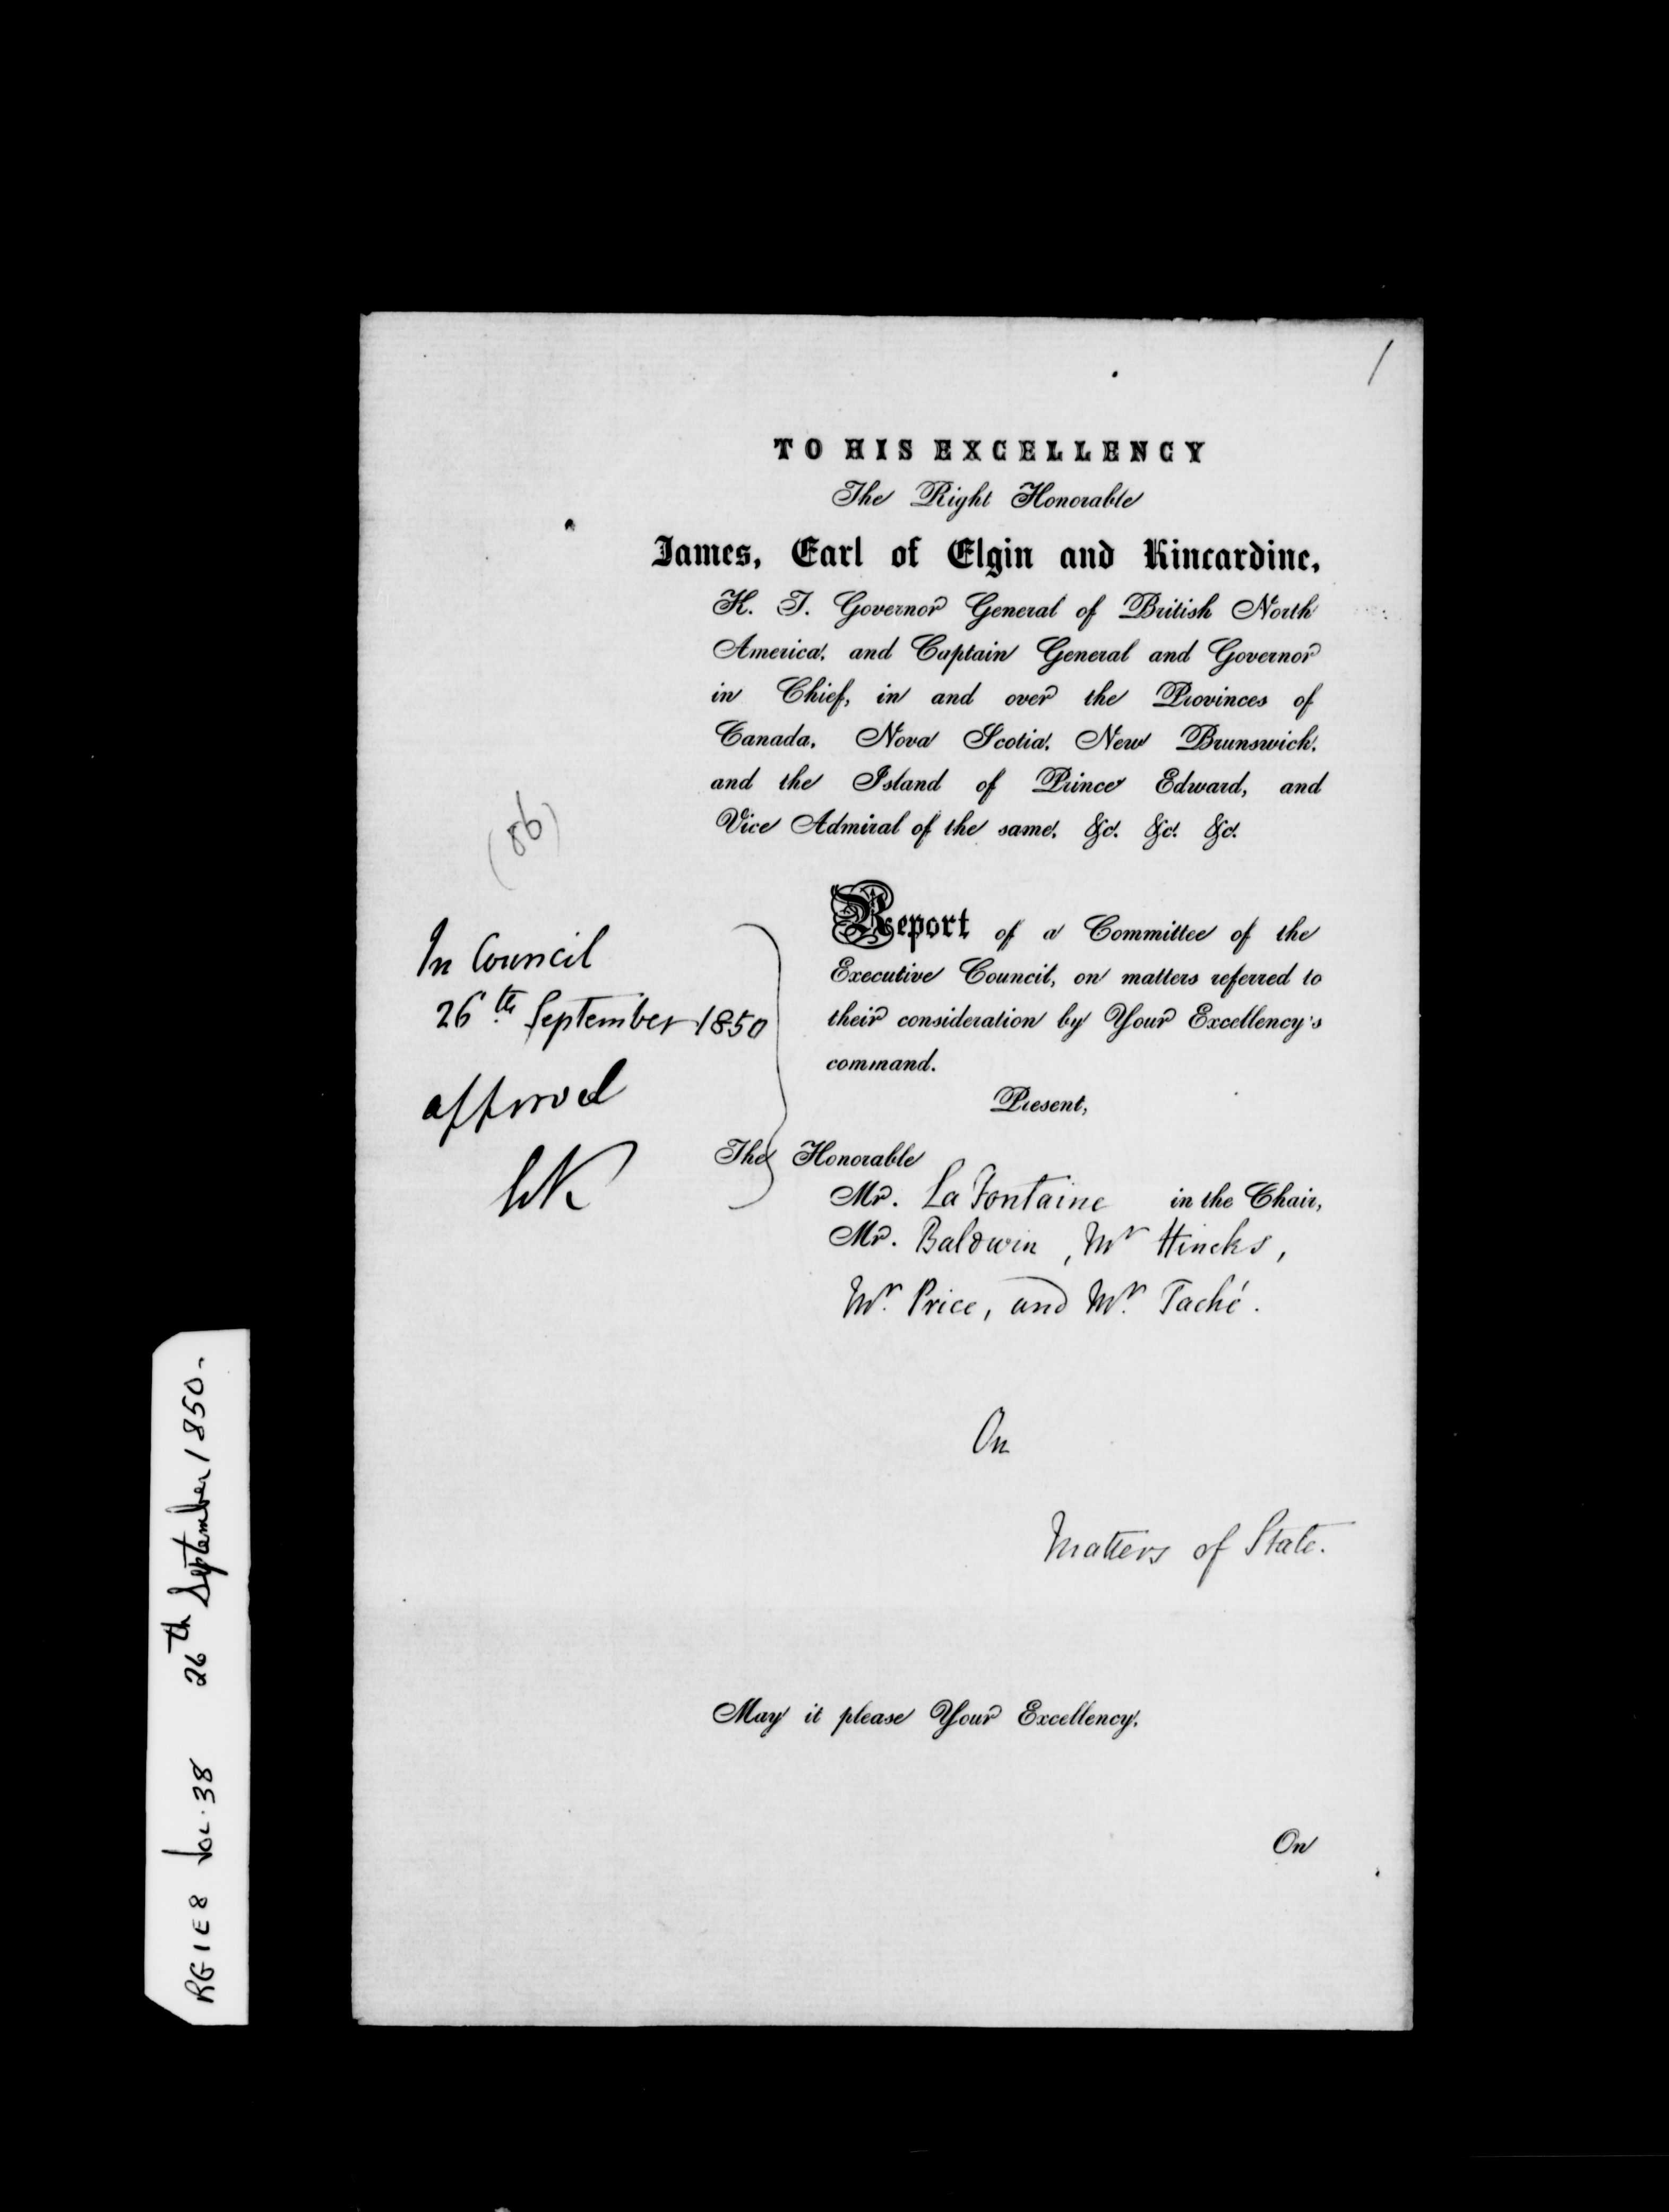 /
TO HIS EXCELLENCY
The Right Honorable
James, Earl of Elgin and Kincardine,
K. T. Governor General of British North
America, and Captain General and Governor
in Chief, in and over the Provinces of
Canada, Nova Scotia, New Brunswick,
and the Island of Prince Edward, and
Vice Admiral of the same, &c. &c. &c.
(86)
In Council
26th September 1850
approved
Report of a Committee of the
Executive Council, on matters referred to
their consideration by Your Excellency's
command.
Present,
The Honorable
Mr. La Fontaine in the Chair,
Mr. Baldwin, Mr Hincks,
Mr. Price, and Mr. Taché.
On
Matters of State.
May it please Your Excellency.
On
RG1E8 Vol. 38 26th September 1850-